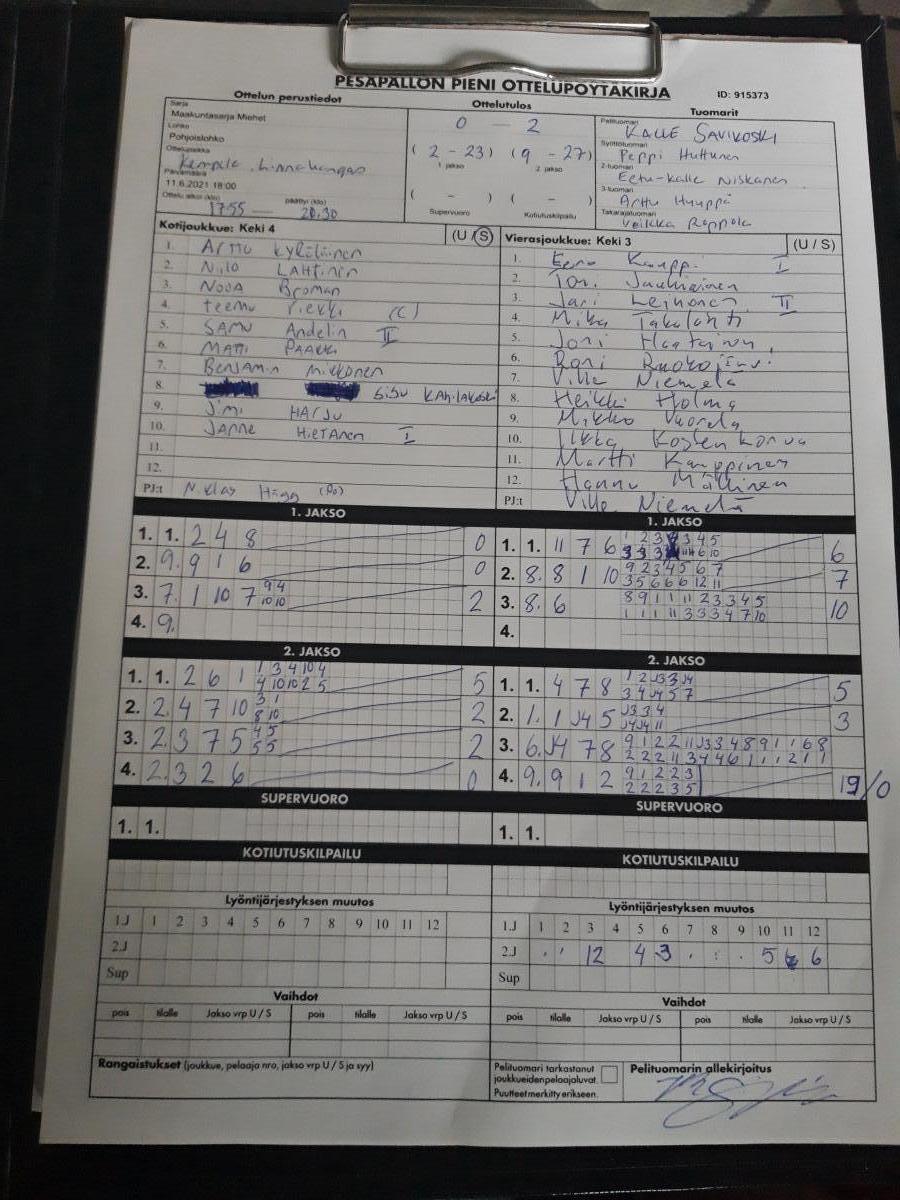 PESÄPALLON PIENI OTTELUPÖYTÄKIRJA
ID: 915373
Ottelun perustiedot
Ottelutulos
Tuomarit
Sarja
Maakuntasarja Miehet
Lohko
Pohjoislohko
Ottelupaikka
Kempele, Linnakangas
Päivämäärä
11.6.2021 18:00
Ottelu alkoi (klo) päättyi (klo)
17.55 — 20.30
0 - 2
(2 - 23) (9 - 27)
1. jakso 2. jakso
( - ) ( - )
Supervuoro Kotiutuskilpailu
Pelituomari
KALLE SAVIKOSKI
Syöttötuomari
Peppi Huttunen
2-tuomari
Eetu-Kalle Niskanen
3-tuomari
Arttu Huuppa
Takarajatuomari
Veikka Roppola
Kotijoukkue: Keki 4 (U / S)
1. Arttu Kyröläinen
2. Niilo LAHTINEN
3. NOOA Broman
4. Teemu Piekki (C)
5. SAMU Andelin II
6. MATTI PAAKKI
7. BENJAMIN MIKKONEN
8. SISU KAHILAKOSKI
9. JIMI HARJU
10. JANNE HIETANEN I
11.
12.
PJ:t Niklas Hägg
Vierasjoukkue: Keki 3 (U / S)
1. Eero Kauppi I
2. Toni Jauhiainen
3. Jari Leinonen II
4. Mika Takalahti
5. Joni Haatainen
6. Roni
7. Ville Niemelä
8. Heikki Holma
9. Mikko Vuorela
10. Ilkka Koskenkorva
11. Martti Kauppinen
12. Hannu Mällinen
PJ:t Ville Niemelä
1. JAKSO
1. 1. 2 4 8 0
2. 9. 9 1 6 0
3. 7. 1 10 7 9 4 2
10 10
4. 9.
1. JAKSO
1. 1. 11 7 6 6
2. 8. 8 1 10 9 2 3 4 5 6 7 7
3 5 6 6 6 12 11
3. 8. 6 8 9 1 1 11 2 3 3 4 5 10
1 1 1 11 3 3 3 4 7 10
4.
2. JAKSO
1. 1. 2 6 1 1 3 4 10 4 5
4 10 10 2 5
2. 2. 4 7 10 3 1 2
8 10
3. 2. 3 7 5 4 5 2
5 5
4. 2. 3 2 6 0
2. JAKSO
1. 1. 4 7 8 1 2 J3 3 J4 5
3 4 J4 5 7
2. 1. 1 J4 5 J3 3 4 3
J4 J4 11
3. 6. J4 7 8 9 1 2 2 11 J3 3 4 8 9 1 1 6 8
2 2 2 11 3 4 4 6 1 1 1 2 1 1
4. 9. 9 1 2 9 1 2 2 3 19/0
2 2 2 3 5
SUPERVUORO
1. 1.
SUPERVUORO
1. 1.
KOTIUTUSKILPAILU
KOTIUTUSKILPAILU
Lyöntijärjestyksen muutos
1.J 1 2 3 4 5 6 7 8 9 10 11 12
2.J
Sup
Lyöntijärjestyksen muutos
1.J 1 2 3 4 5 6 7 8 9 10 11 12
2.J 12 4 3 5 6
Sup
Vaihdot
pois tilalle Jakso vrp U / S pois tilalle Jakso vrp U / S
Vaihdot
pois tilalle Jakso vrp U / S pois tilalle Jakso vrp U / S
Rangaistukset (joukkue, pelaaja nro, jakso vrp U / S ja syy)
Pelituomari tarkastanut
joukkueiden pelaajaluvat.
Puutteet merkitty erikseen.
Pelituomarin allekirjoitus